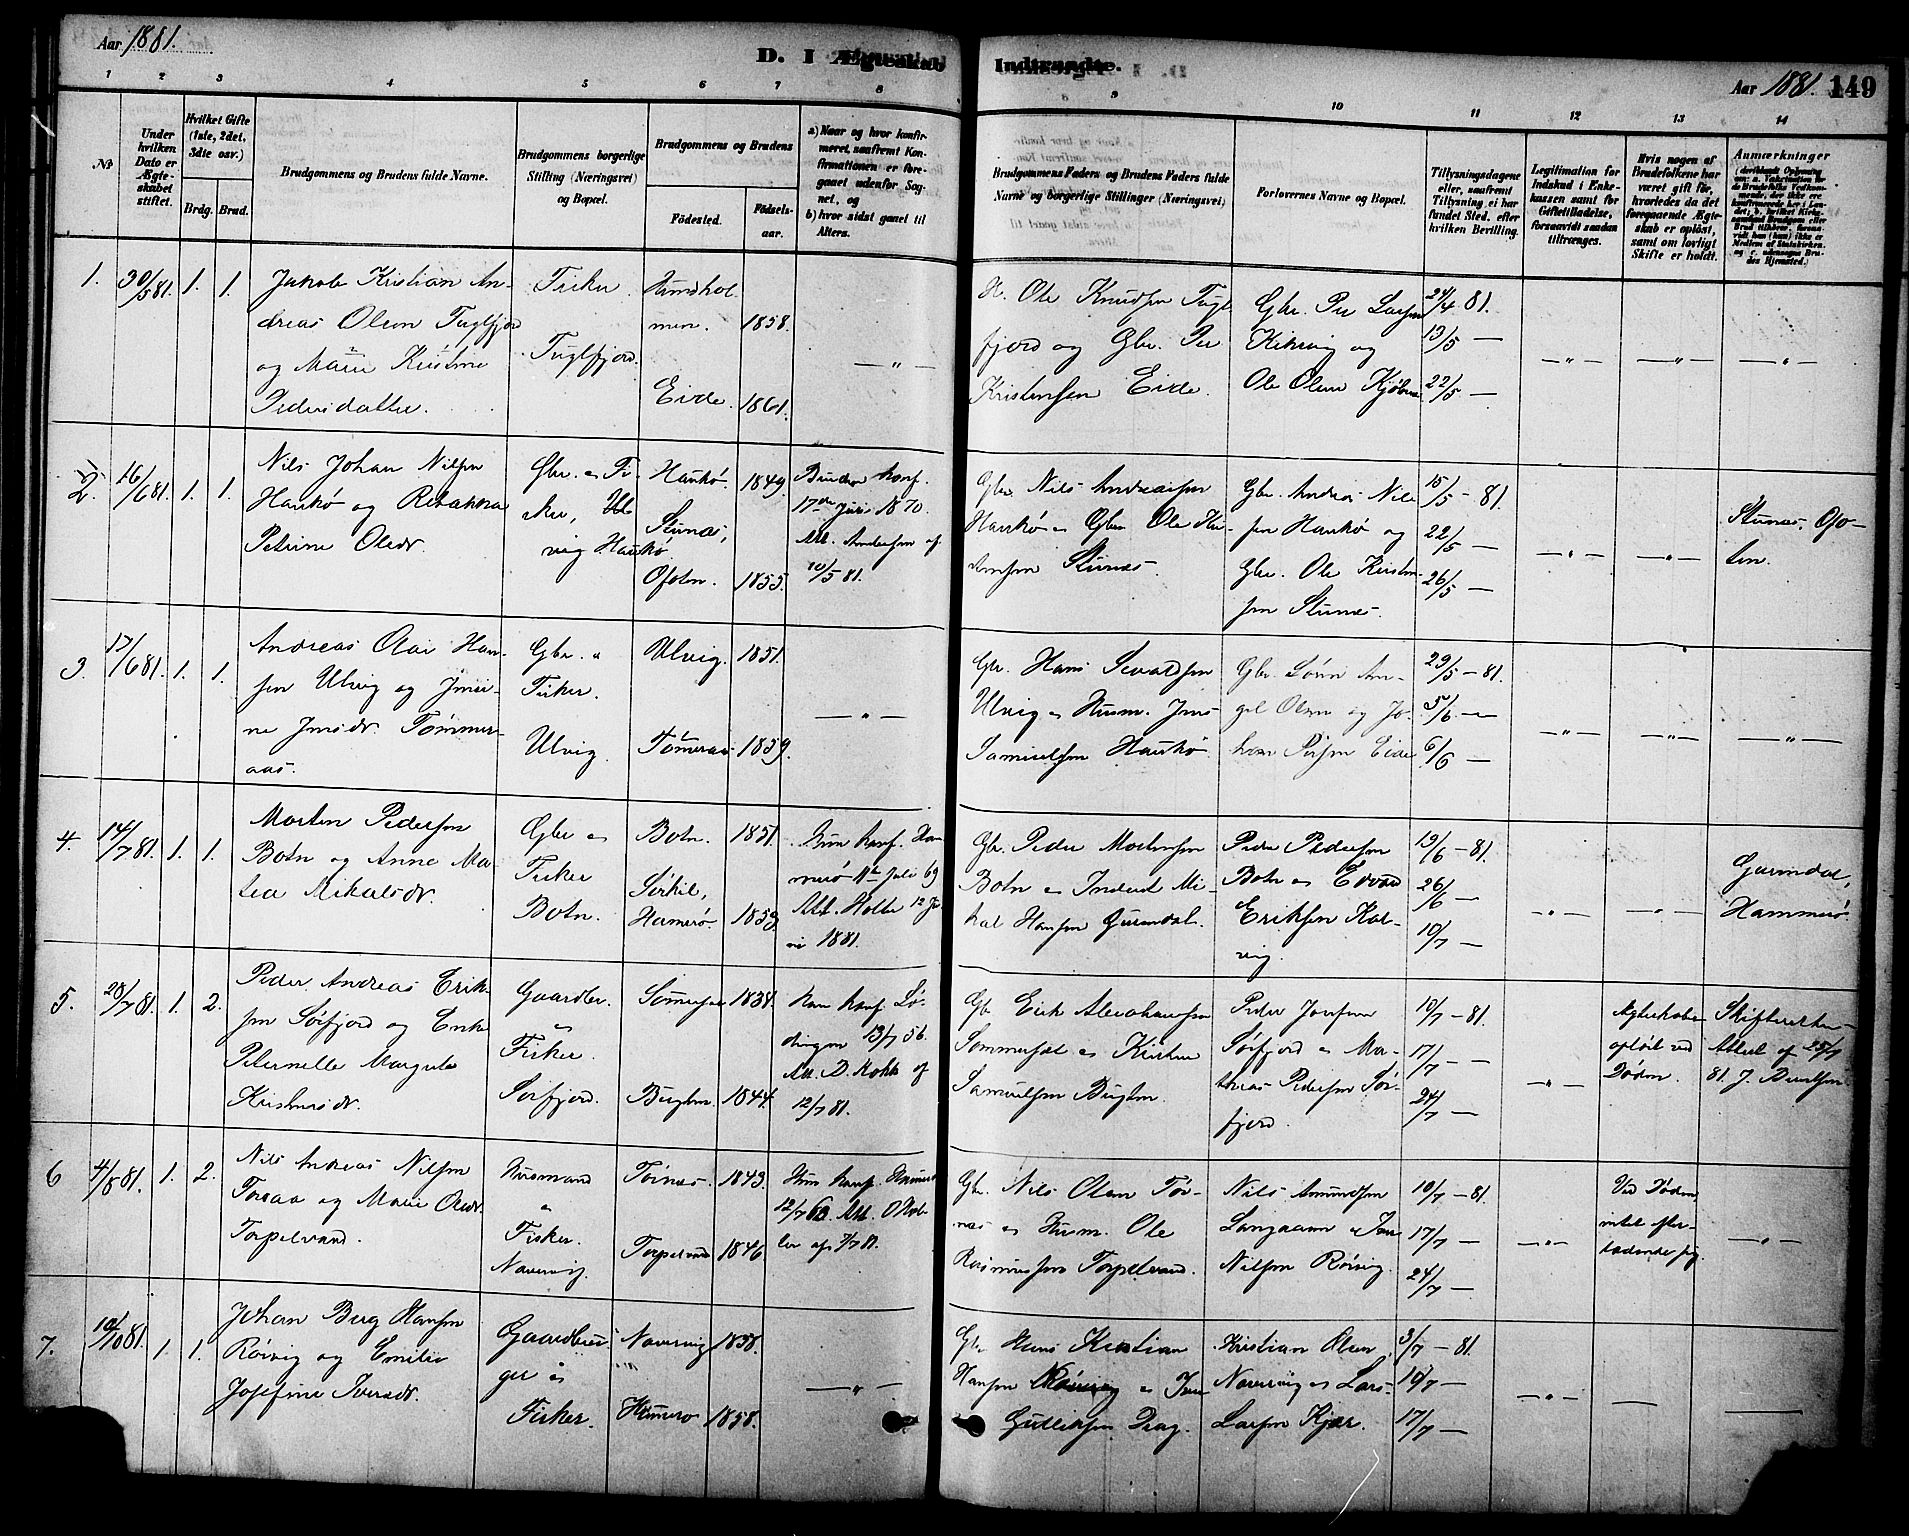 Aar 1881.
D. I Ægteskab Indtraadte.
Aar 1881. 149
1 2 3 4 5 6 7 8 9 10 11 12 13 14
No
Under hvilken Dato er Ægteskabet stiftet.
Hvilket Gifte (1ste, 2det, 3die osv.)
Brdg. Brud.
Brudgommens og Brudens fulde Navne.
Brudgommens borgerlige Stilling (Næringsvei) og Bopæl.
Brudgommens og Brudens
Fødested. Fødselsaar.
a) Naar og hvor konfirmeret, saafremt Konfirmationen er foregaaet udenfor Sognet, og
b) hvor sidst gaaet til Alters.
Brudgommens Faders og Brudens Faders fulde Navne og borgerlige Stillinger (Næringsvei)
Forlovernes Navne og Bopæl.
Tillysningsdagene eller, saafremt Tillysning ei har fundet Sted, efter hvilken Bevilling.
Legitimation for Indskud i Enkekassen samt for Giftetilladelse, forsaavidt saadan tiltrænges.
Hvis nogen af Brudefolkene har været gift før, hvorledes da det foregaaende Ægteskab er opløst, samt om lovligt Skifte er holdt.
Anmærkninger
1. 30/5 81. 1. 1.
Jakob Kristian An-
dreas Olsen Tuglfjord
og Marie Kristine
Pedersdatter.
Fisker
Tuglfjord.
Hundhol-
men. 1858.
Eide. 1861.
— " —
H. Ole Knudsen Tugl-
fjord og Gbr. Per
Kristensen Eide.
Gbr. Per Larsen
Kikvig og
Ole Olsen
24/4 81.
13/5 —
22/5 —
— " —
— " —
— " —
2. 16/6 81. 1. 1.
Nils Johan Nilsen
Haukø og Rebekka
Petrine Olsdr.
Gbr. & Fi-
sker,
Haukø
Haukø. 1849.
Stunes,
Ofoten. 1855.
Bruden konf.
17de Juni 1870.
Att. Andersen af
10/5 81.
Gbr. Nils Andreassen
Haukø & Gbr. Ole Kri-
stensen Stunes.
Gbr. Andreas Nils-
sen Haukø og
Gbr. Ole Kristen-
sen Stunes.
15/5 — 81.
22/5 —
26/5 —
— " —
— " —
Stunes, Ofo-
ten.
3. 17/6 81. 1. 1.
Andreas Olai Han-
sen Ulvig og Jensi-
ne Jensdr. Tømmer-
aas.
Gbr. &
Fisker.
Ulvig.
Ulvig. 1851.
Tømeraas 1859.
— " —
Gbr. Hans Sivardsen
Ulvig & Husm. Jens
Samuelsen Haukø.
Gbr. Søren An-
gel Olsen og Jo-
han Persen Eide
29/5 — 81.
5/6 —
6/6 —
— " —
— " —
— " —
4. 14/7 81. 1. 1.
Morten Pedersen
Botn og Anne Ma-
tea Mikalsdr.
Gbr &
Fisker
Botn.
Botn. 1851.
Sirkil,
Hamerø. 1859.
Brun konf. Ham-
merø 11te Juli 69
Att. Holte 12 Ju-
ni 1881.
Gbr. Peder Mortensen
Botn & Inderst Mi-
kal Hansen Gurendal.
Peder Pedersen
Botn & Edvard
Eriksen Kal-
vig.
19/6 — 81.
26/6 —
10/7 —
— " —
— " —
Hammerø
5. 28/7 81. 1. 2.
Peder Andreas Erik-
sen Sørfjord og Enke
Peternille Margrete
Kristensdr.
Gaardbr.
&
Fisker.
Sørfjord.
Sommerset 1838.
Bugten. 1844.
Han konf. Lø-
dingen 13/7 56.
Att. D. Kohle af
12/7 81.
Gbr Erik Abrahamsen
Sommerset & Kristen
Samuelsen Bugten.
Peder Jonsen
Sørfjord & Ma-
thias Pedersen Sør-
fjord.
10/7 — 81.
17/7 —
24/7 —
— " —
Ægteskabet
opløst ved
Døden.
Skifteretten
Attest af 25/7
81.
6 4/8 81. 1. 2.
Nils Andreas Nilsen
Foraa og Marie Olsdr.
Torpelvand.
Husmand
&
Fisker.
Navervig.
Tørnes. 1843.
Torpelvand 1846
Hun konf. Hamerø
12/7 60 Att. O Koh-
ler af 7/7 81.
Gbr. Nils Olsen Tør-
nes & Husm. Ole
Rasmussen Torpelvand.
Nils Amundsen
Langaaen & Iver
Nilsen Røivig.
10/7 — 81.
17/7 —
24/7 —
— " —
Ved Døden
intet efter-
ladende sig.
— " —
7. 10/10 81. 1. 1.
Johan Berg Hansen
Røivig og Emilie
Josefine Iversdr.
Gaardbru-
ger &
Fisker.
Naverwig 1858.
Hamerø 1858.
— " —
Gbr Hans Kristian
Hansen Røivig & Iver
Gulliksen Drag.
Kristian Olsen
Naverwig & Lars
Larsen Kjær.
3/7 — 81.
10/7 —
17/7 —
— " —